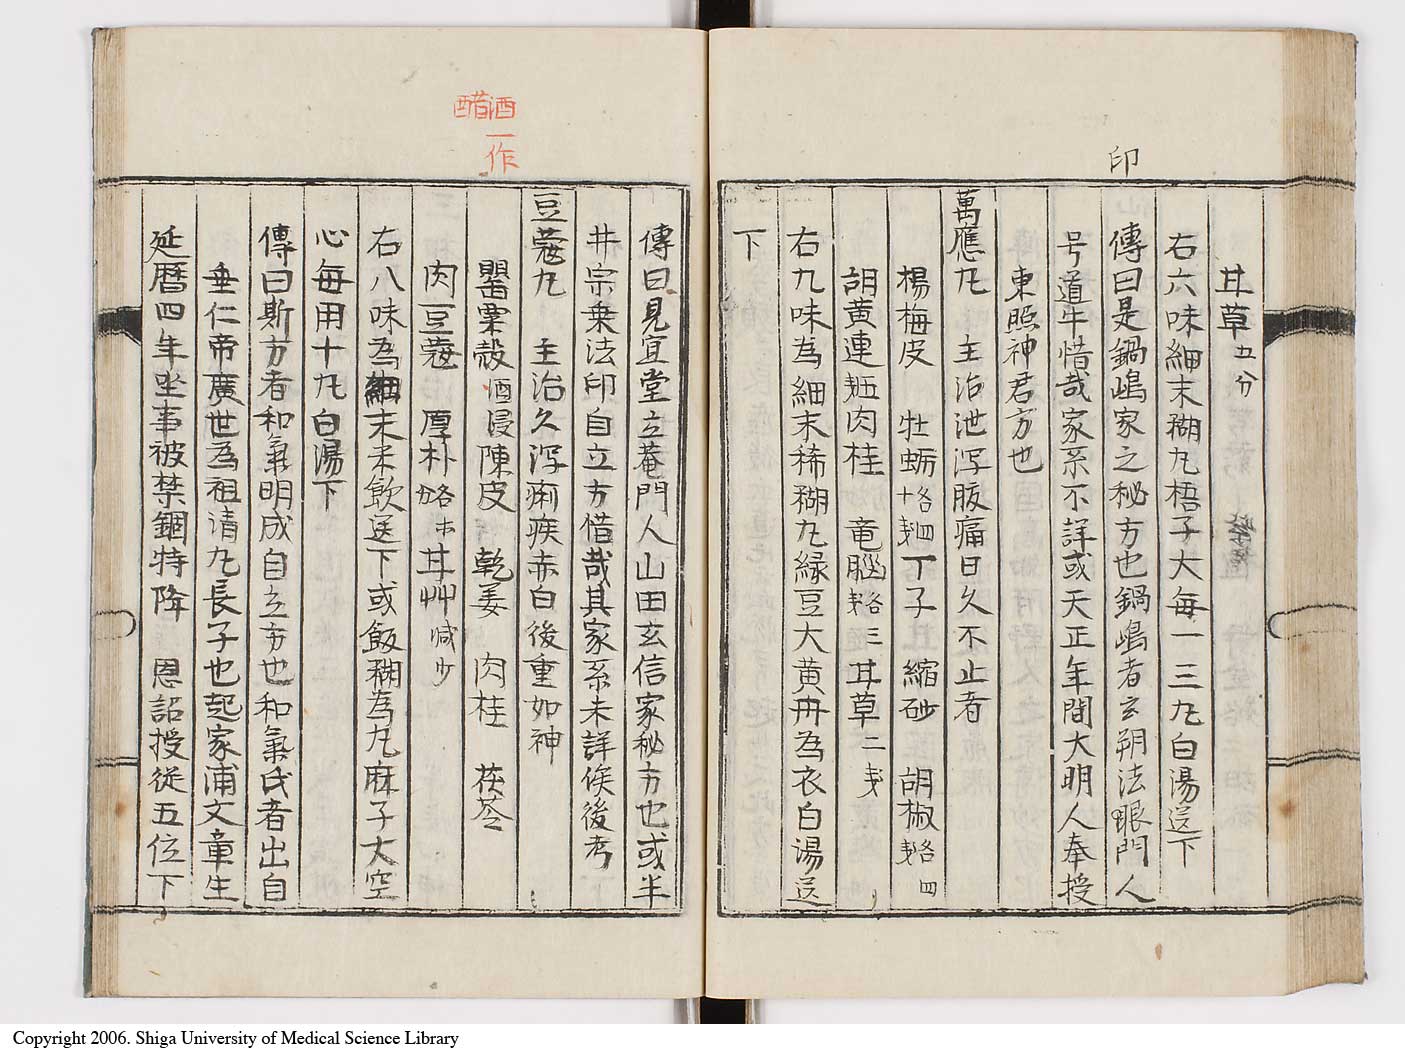 印
甘草五分
右六味細末糊丸梧子大每一三丸白湯送下
傳曰是鍋嶋家之秘方也鍋嶋者玄朔法眼門人
号道牛惜哉家系不詳或天正年間大明人奉授
東照神君方也
萬應丸　主治泄泻腹痛日久不止者
楊梅皮　牡蛎　丁子　縮砂　胡椒　四
胡黄連　肉桂　竜脳　三　甘草二
右九味為細末稀糊丸緑豆大黄丹為衣白湯送
下
酒一作
醋
傳曰見宜堂立菴門人山田玄信家秘方也或半
井宗乗法印自立方惜哉其家系未詳俟後考
豆蔲丸　主治久泻痢疾赤白後重如神
罌粟殻酒浸　陳皮　乾姜　肉桂　茯苓
肉豆蔲　厚朴　甘艸减少
右八味為細末禾飲送下或飯糊為丸麻子大空
心每用十丸白湯下
傳曰斯方者和氣明成自立方也和氣氏者出自
垂仁帝廣世為祖清丸長子也起家浦文章生
延暦四年坐事被禁錮特降　恩詔授従五位下
Copyright 2006. Shiga University of Medical Science Library